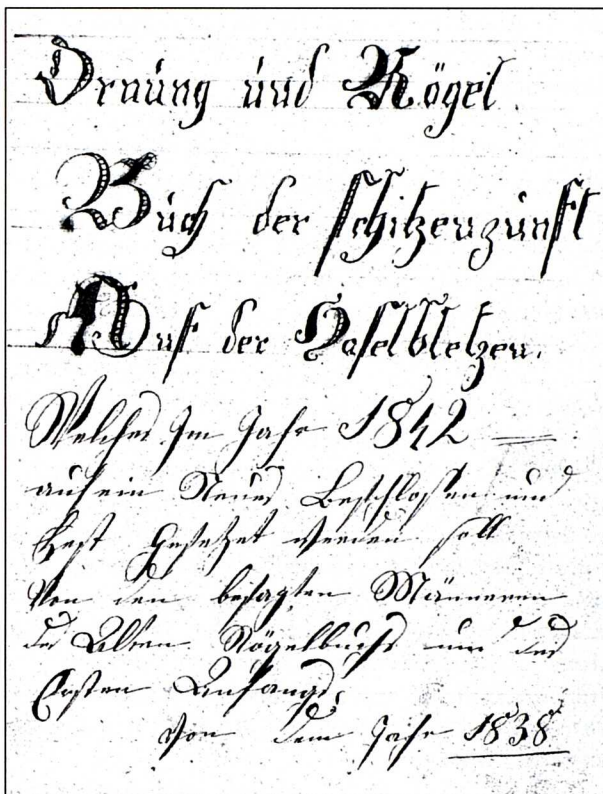 Ornúng úud Rögel
Búch der schitzenzúnft
Auf der Haselbletzen.
Welches Im Jahr 1842
auf ein Neues Beschlossen und
fest gesetzet werden soll
Von den besagten Männeren
des Alten Rögelbuchs und des
Ersten Anfangs,
Von dem Jahr 1838